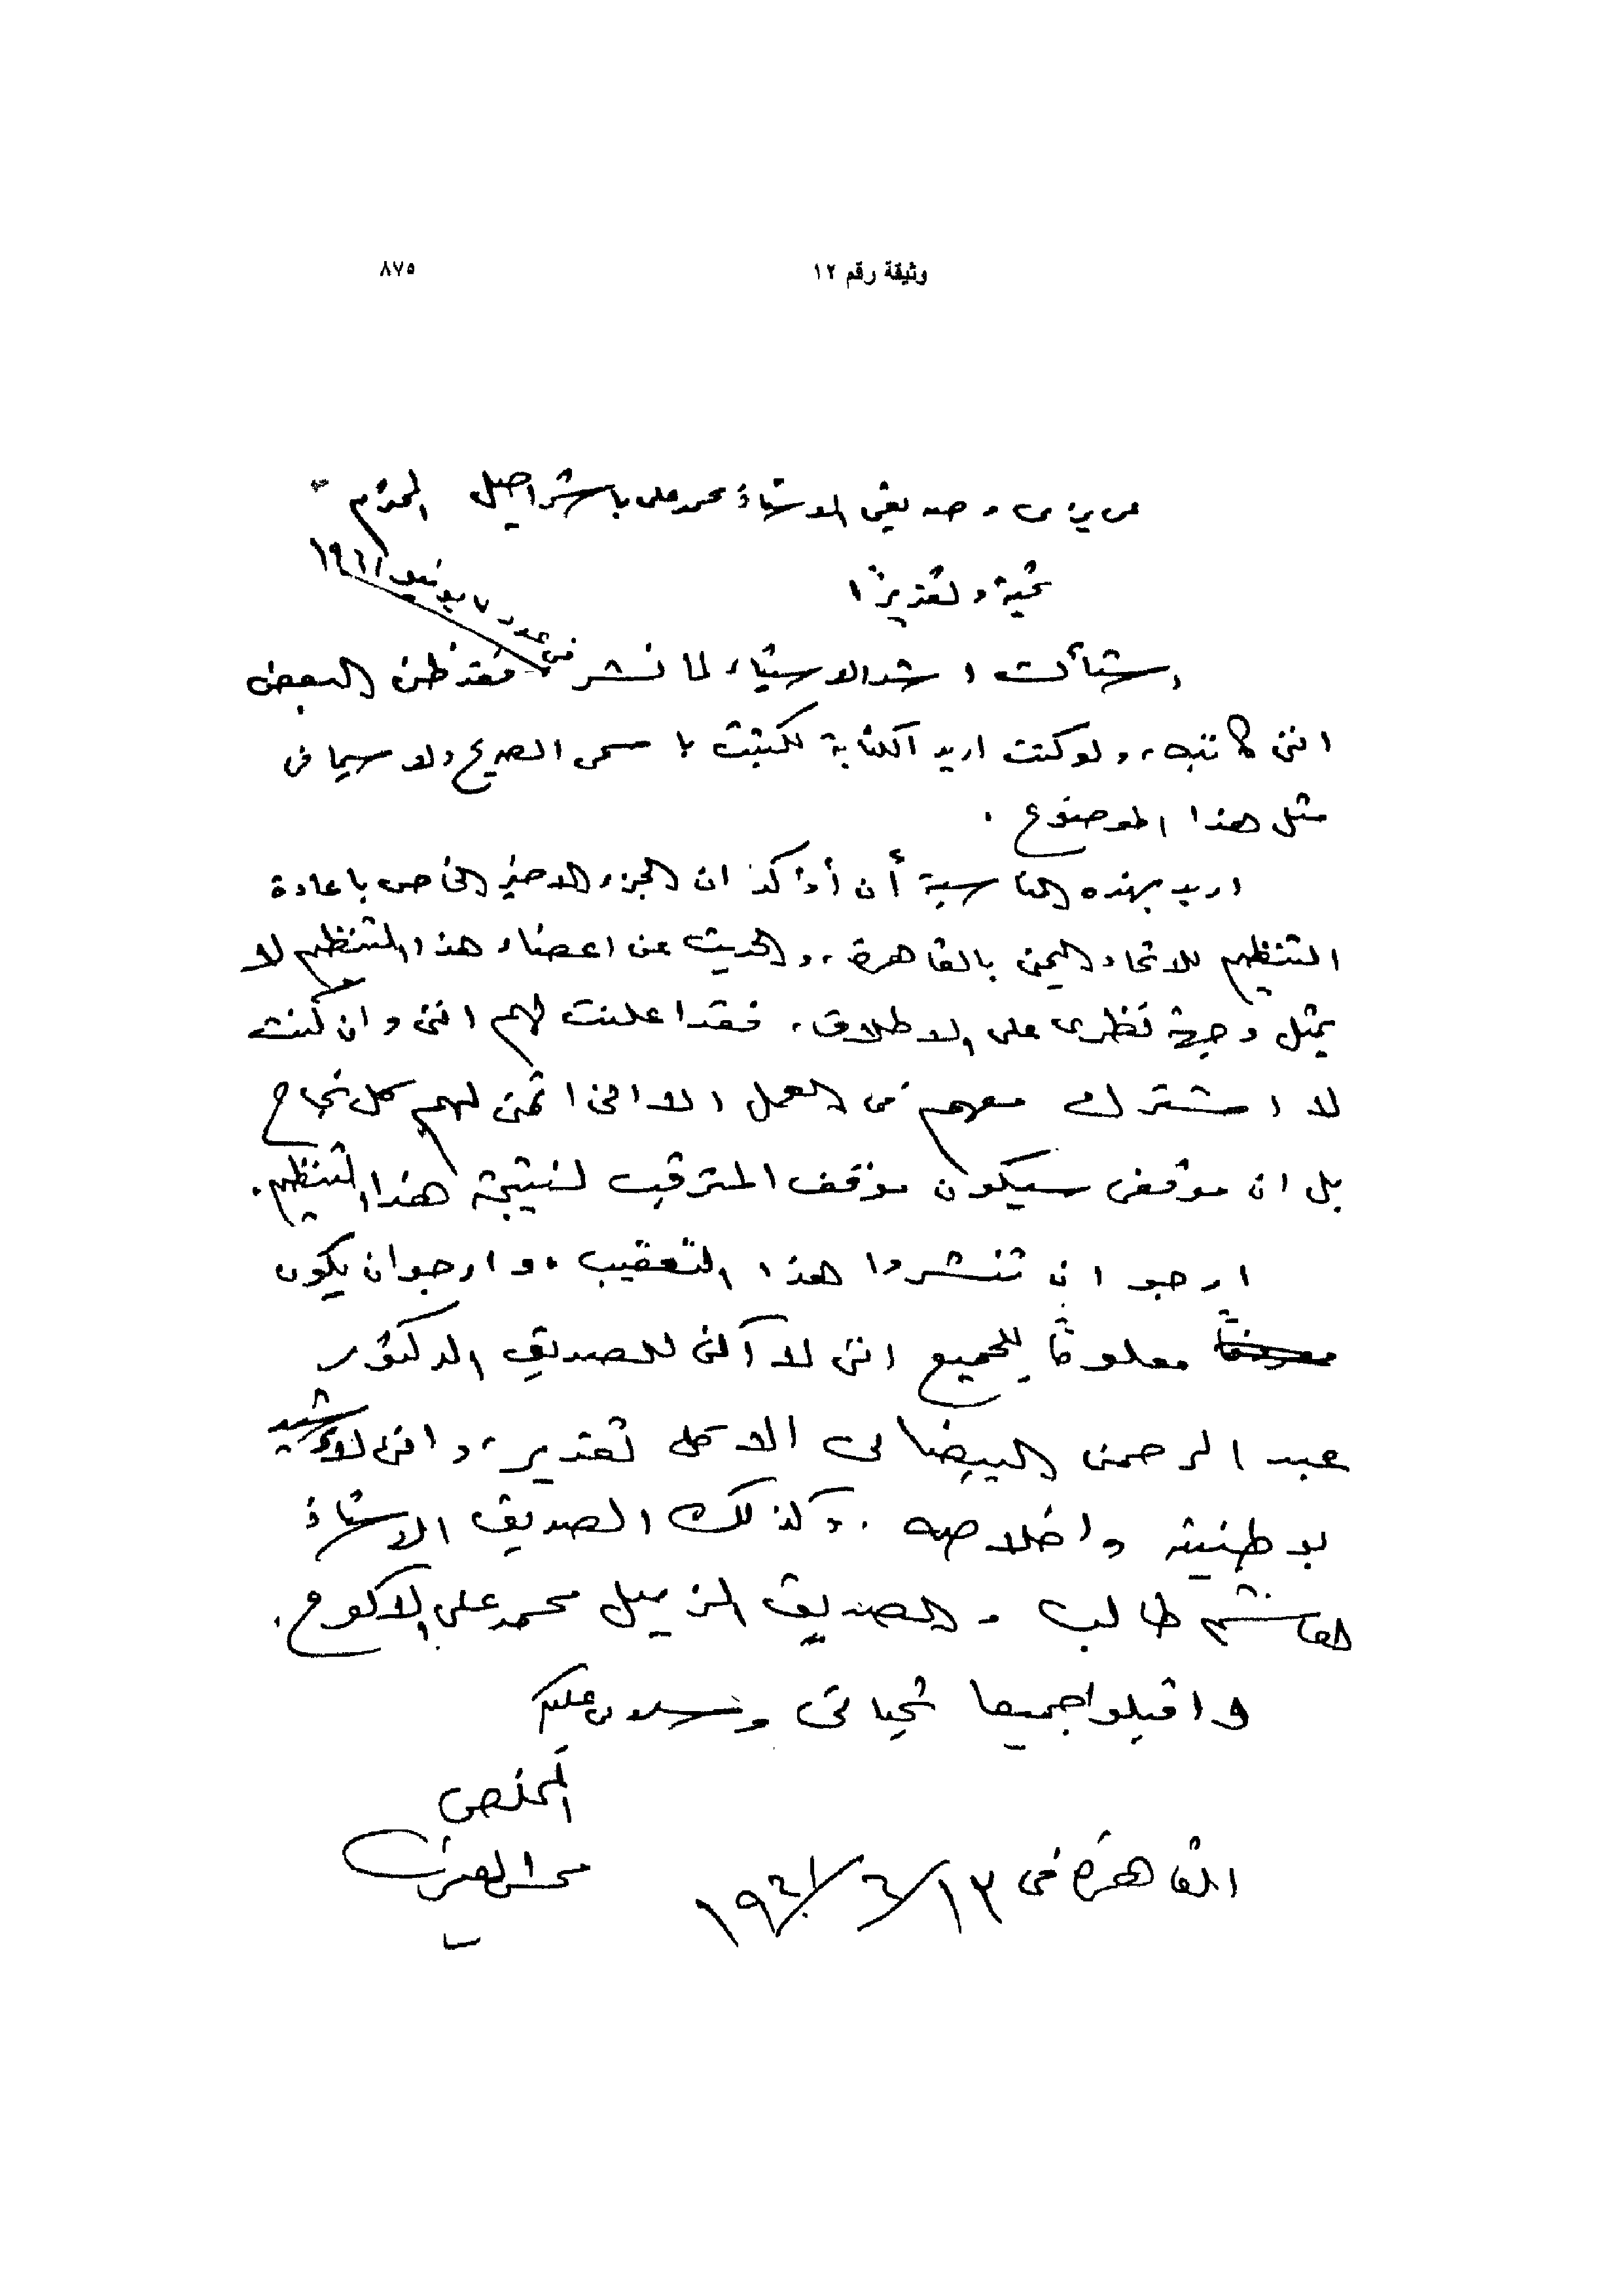 وثيقة رقم ١٢
٨٧٥
عزيزى وصديقى الاستاذ محمد على باشراحيل المحترم
تحية وتقديرا
استأت اشد الاستياء لما نشر فى عدد ٧ يونيو ١٩٦١ فقد ظن البعض
اننى كاتبه، ولو كنت اريد الكتابة لكتبت باسمى الصريح ولا سيما فى
مثل هذا الموضوع .
اريد بهذه المناسبة أن أؤكد ان الجزء الاخير الخاص باعادة
التنظيم للاتحاد اليمنى بالقاهرة، والحديث عن اعضاء هذا التنظيم لا
يمثل وجهة نظرى على الاطلاق، فقد اعلنت لهم اننى وان كنت
لا اشترك معهم فى العمل الا اننى اتمنى لهم كل نجاح
بل ان موقفى سيكون موقف المترقب لنتيجة هذا التنظيم.
ارجو ان تنشروا هذا التعقيب، وارجو ان يكون
معلوما للجميع اننى لا اكن للصديق الدكتور
عبد الرحمن البيضانى الا كل تقدير، واننى لأشيد
بوطنيته واخلاصه . وكذلك الصديق الاستاذ
هاشم طالب والصديق الزميل محمد على الاكوع .
واقبلوا جميعا تحياتى وسلامى عليكم
المخلص
محسن العينى
القاهرة فى ١٣/٦/١٩٦١